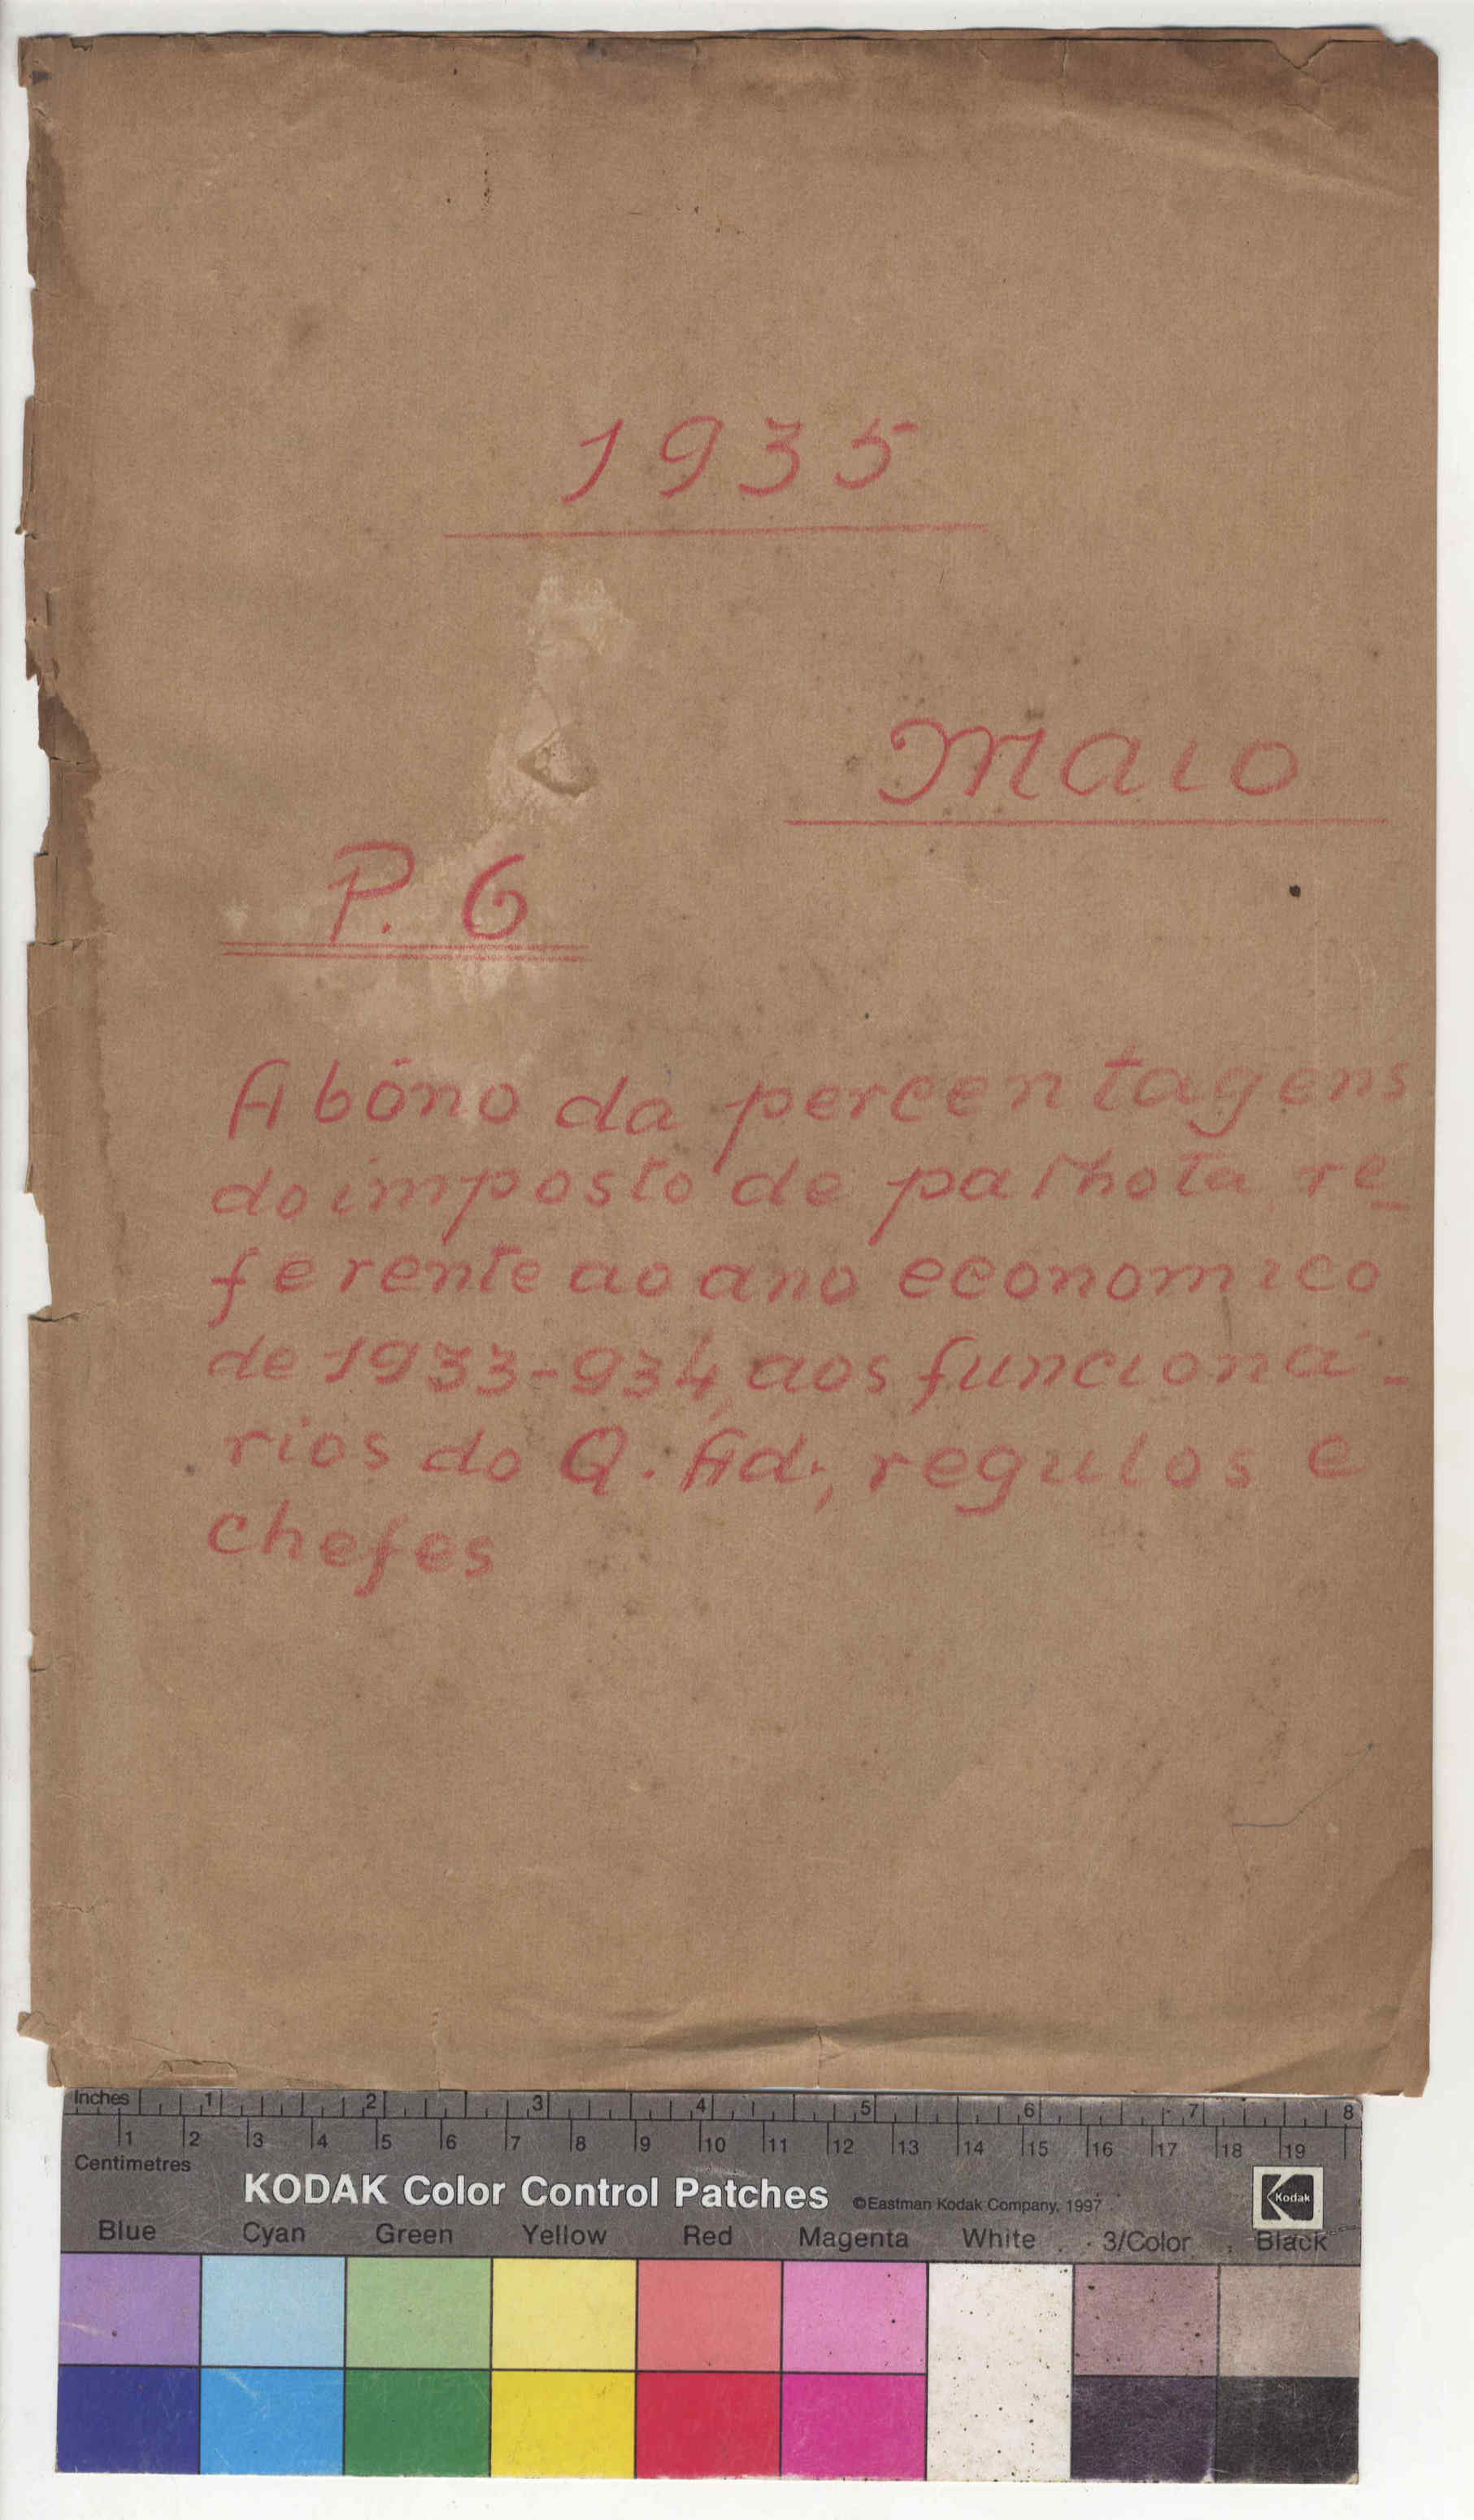 1935
Maio
P. 6
Abôno da percentagens
do imposto de palhota re-
ferente ao ano economico
de 1933-934, aos funcioná-
rios do Q. Ad., regulos e
chefes
Inches 1 2 3 4 5 6 7 8
1 2 3 4 5 6 7 8 9 10 11 12 13 14 15 16 17 18 19
Centimetres
KODAK Color Control Patches ©Eastman Kodak Company, 1997 Kodak
Blue Cyan Green Yellow Red Magenta White 3/Color Black